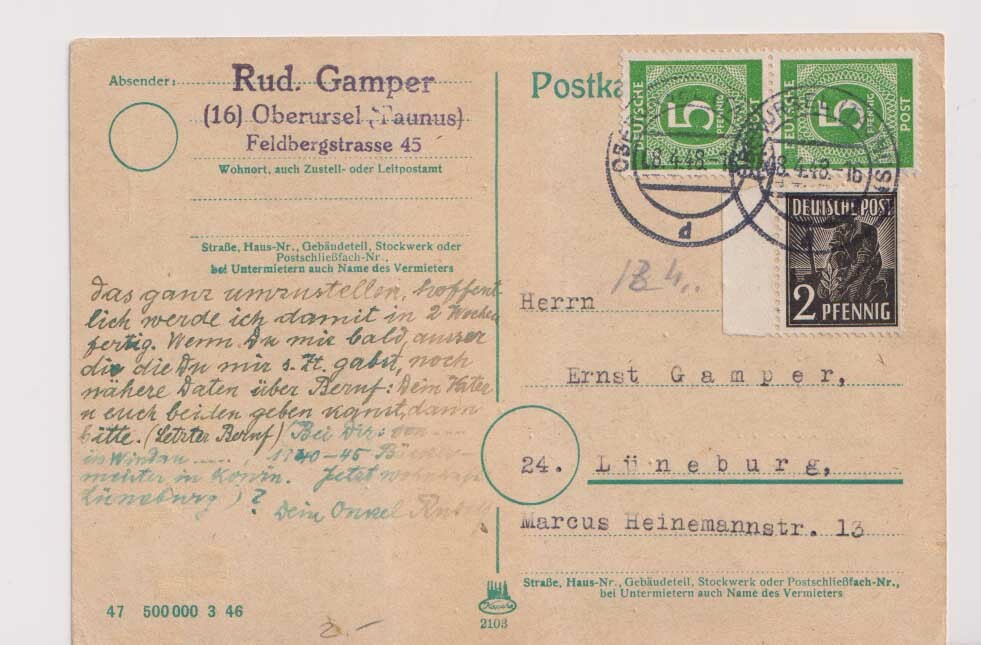 Absender:
Rud. Gamper
(16) Oberursel (Taunus)
Feldbergstrasse 45
Wohnort, auch Zustell- oder Leitpostamt
Straße, Haus-Nr., Gebäudeteil, Stockwerk oder
Postschließfach-Nr.,
bei Untermietern auch Name des Vermieters
das ganz umzustellen, hoffent
lich werde ich damit in 2 Wochen
fertig. Wenn Du mir bald, ausser
die die Du mir s. Zt. gabst, noch
nähere Daten über Beruf: Dein Vater
u euch beiden geben kannst, dann
bitte. (Letzter Beruf) Bei Dir: von
in Winden 1940-45
meister in Konin. Jetzt
Lüneburg)?
Dein Onkel
47 500 000 3 46
2.-
Postka
DEUTSCHE POST
5
PFENNIG
DEUTSCHE POST
5
PFENNIG
8.4.48.-16
d
8.4.48.-16
DEUTSCHE POST
2 PFENNIG
Herrn
Ernst Gamper,
24. Lüneburg,
Marcus Heinemannstr. 13
Straße, Haus-Nr., Gebäudeteil, Stockwerk oder Postschließfach-Nr.,
bei Untermietern auch Name des Vermieters
2103